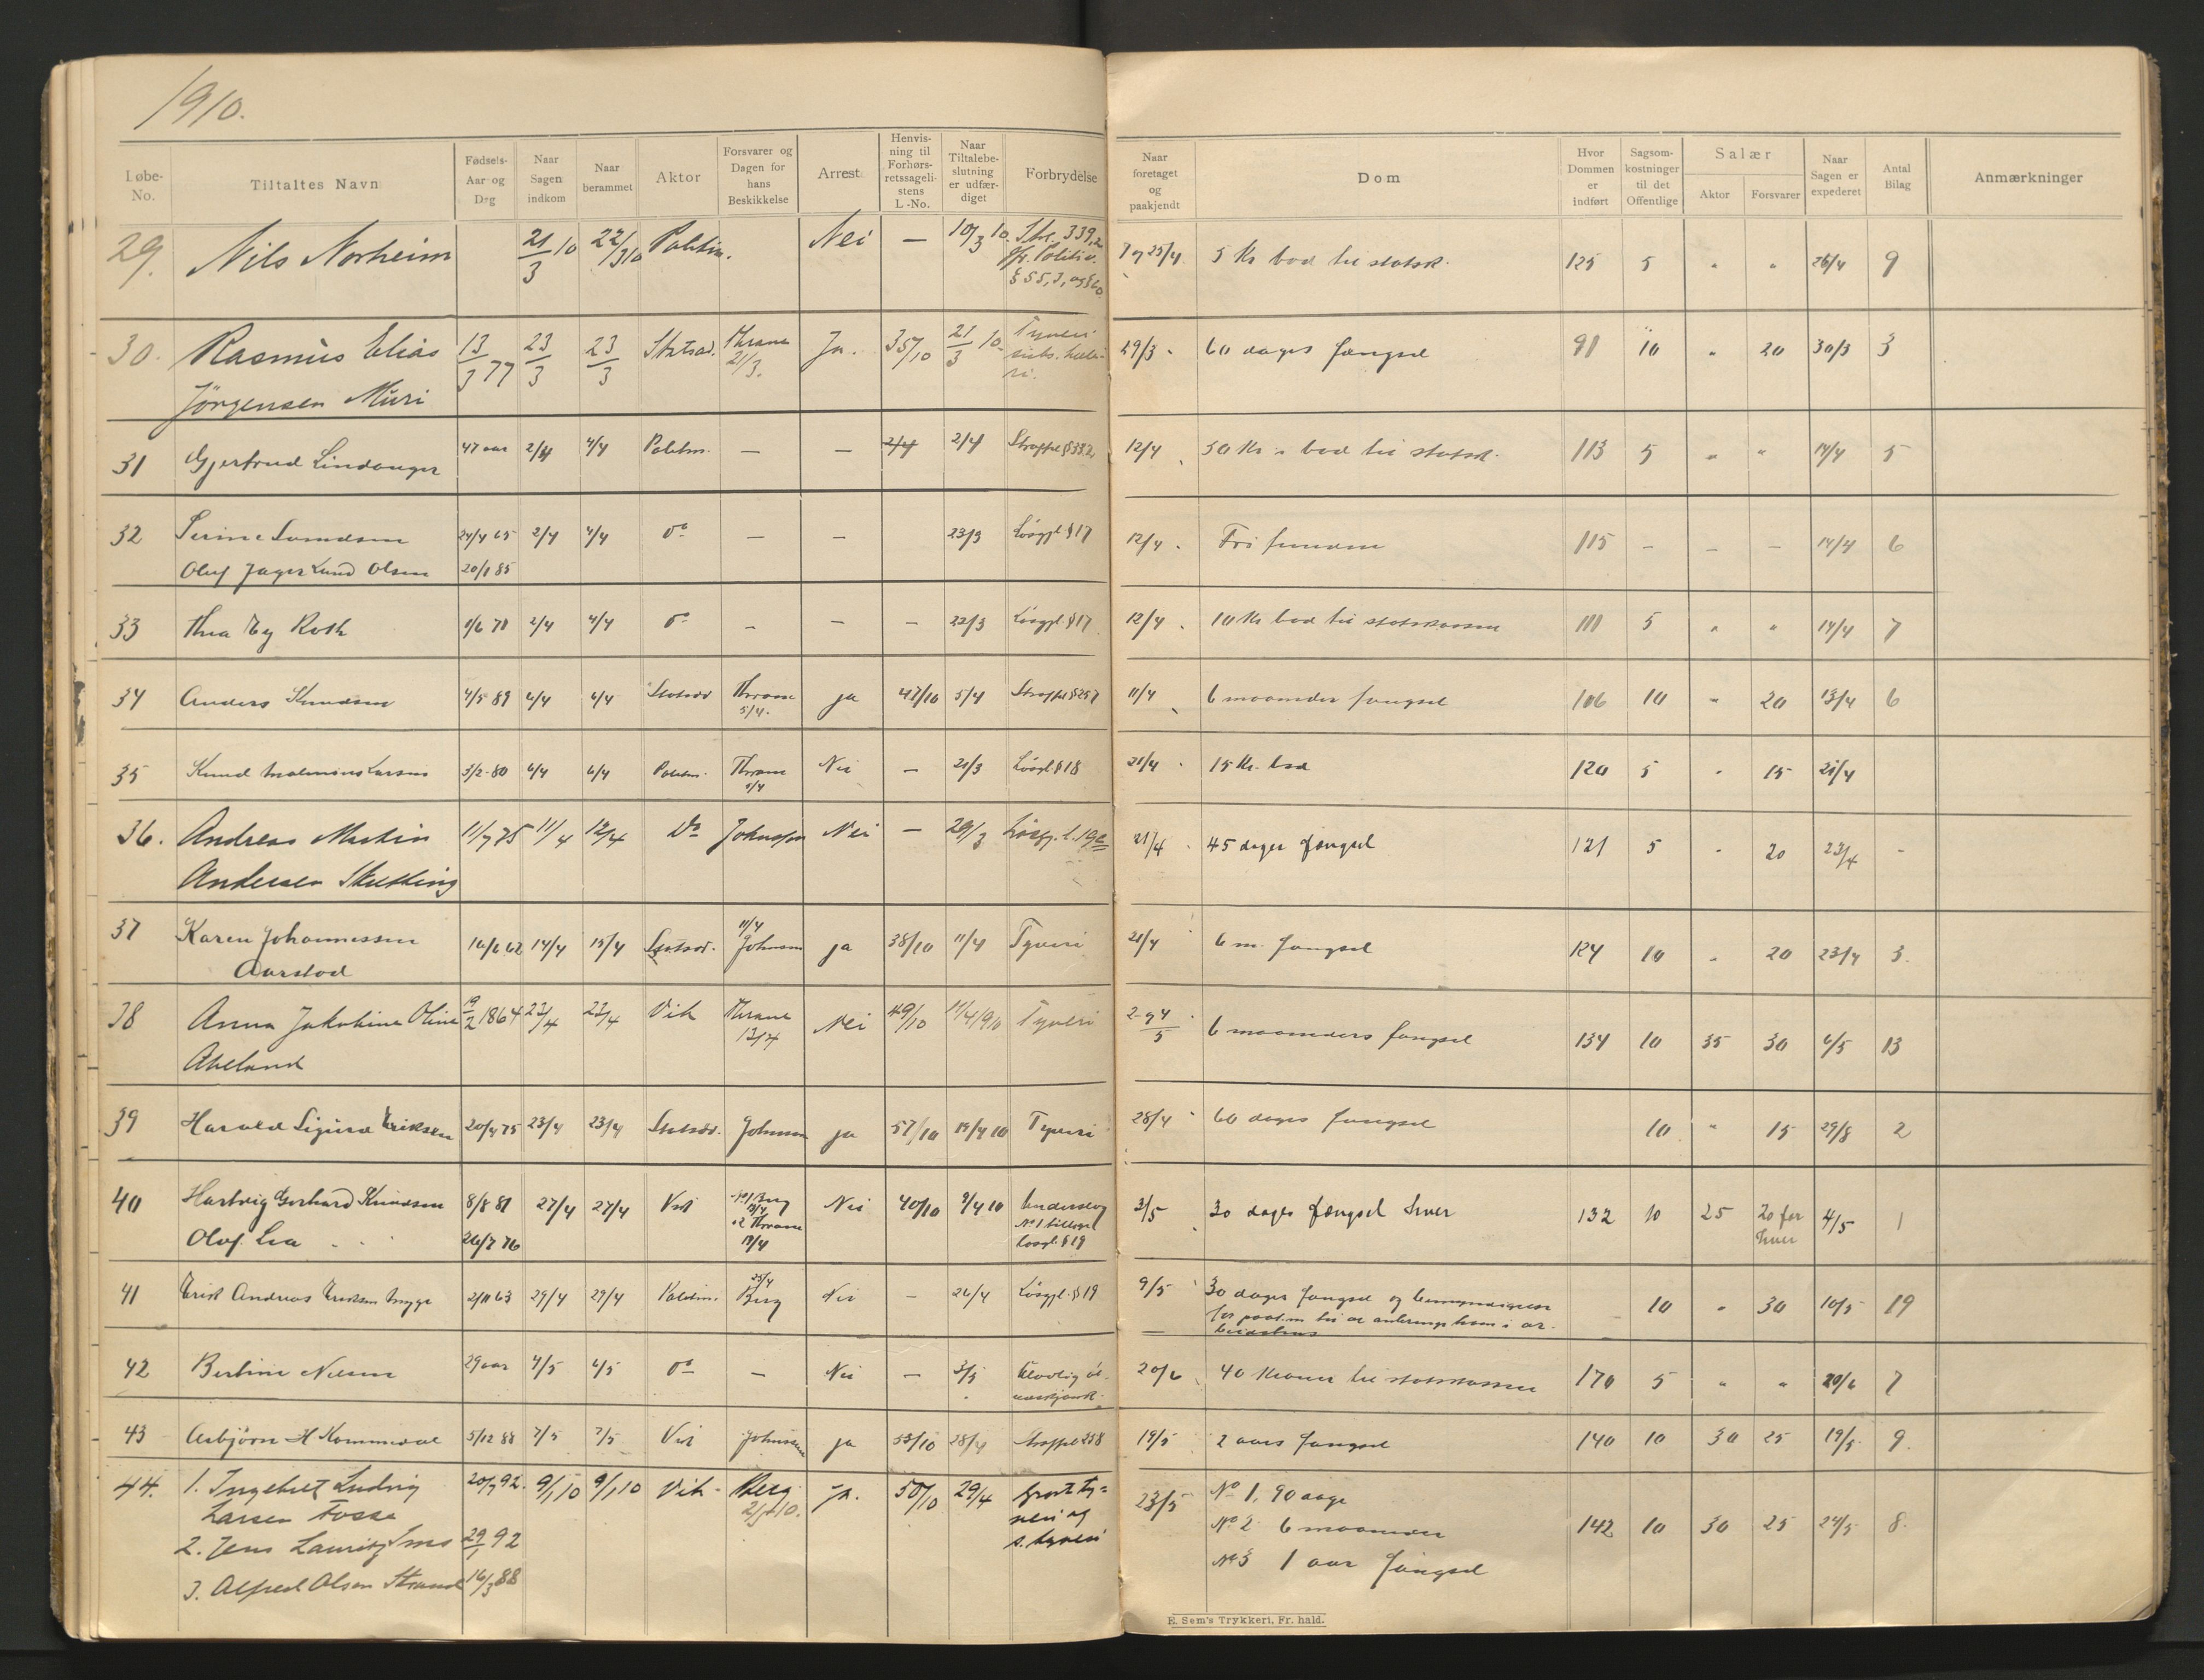 1910.
Løbe-No. Tiltaltes Navn Fødsels-Aar og Dag Naar Sagen indkom Naar berammet Aktor Forsvarer og Dagen for hans Beskikkelse Arrest Henvisning til Forhørsretssagelistens L.-No. Naar Tiltalebeslutning er udfærdiget Forbrydelse Naar foretaget og paakjendt Dom Hvor Dommen er indført Sagsomkostninger til det Offentlige Salær Aktor Forsvarer Naar Sagen er expederet Antal Bilag Anmærkninger
29. Nils Norheim 21/3 10 22/3 10 Politim. Nei — 10/3 10. Strl. 339,2 25/4 5 Kr bod til statsk. 125 5 " " 26/4 9
§ 55,
30. Rasmus Elias 13/3 77 23/3 23/3 Statsad. Thrane 21/3. Ja. 35/10 21/3 10 Tyveri 29/3 60 dages fængsel 91 10 " 20 30/3 3
Jörgensen Muri
31 Gjertrud Lindanger 47 aar 2/4 4/4 Politm. — — 2/4 2/4 12/4 50 Kr. bod til statsk. 113 5 " " 14/4 5
32 Serine 24/4 65 2/4 4/4 do — — 23/3 Løsgjl § 17 12/4 Frifunden 115 – – – 14/4 6
Oluf Jager Lund Olsen 20/1 85
33 Thea Roth 1/6 78 2/4 4/4 do – – – 22/3 Løsgjl § 17 12/4 10 Kr bod til statskassen 111 5 " " 14/4 7
34 Anders Knudsen 4/5 89 6/4 6/4 Statsad Thrane 5/4. ja 47/10 5/4 Straffel § 257 11/4 6 maaneder fængsel 106 10 " 20 13/4 6
35 Knud Larsen 3/2 80 6/4 6/4 Politm. Thrane Nei — 21/3 Løsgl § 18 21/4 15 Kr. bod 120 5 " 15 21/4
36. Andreas Martin 11/7 75 11/4 12/4 Do Johnsen Nei — 29/3 Løsgj. l. 19 21/4 45 dages fængsel 121 5 " 20 23/4 -
Andersen
37 Karen Johannessen 16/6 62 14/4 15/4 Statsad. 11/4 Johnsen ja 38/10 11/4 Tyveri 21/4 6 m. fængsel 124 10 " 20 23/4 3.
Aarstod
38 Anna Jakobine Oline 19/2 1864 23/4 23/4 Vik Thrane 13/4 Nei 49/10 11/4 1910 Tyveri 2 og 4/5 6 maaneders fængsel 134 10 35 30 6/5 13
Abeland
39 Harald Sigurd Eriksen 20/4 75 23/4 23/4 Statsad. Johnsen ja 57/10 19/4 10 Tyveri 28/4 60 dages fængsel 10 " 15 29/8 2
40 Hartvig Gerhard Knudsen 8/8 81 27/4 27/4 Vik No 1 Berg Nei 40/10 9/4 10 Underslag 3/5 30 dages fængsel hver 132 10 25 20 for hver 4/5 1
Olof Lea 26/7 76 2 Thrane No 1 tillige Løsgl. § 19
41 Erik Andreas Eriksen 2/11 63 29/4 29/4 Politim. 25/4 Berg Nei – 26/4 Løsgjl. § 19 9/5 30 dages fængsel og bemyndigelse 10 " 30 10/5 19
for paatm til at anbringe ham i arbeidshus
42 Bertine Nilsen 29 aar 4/5 4/5 do — Nei — 3/5 Ulovlig øludskjænk. 20/6 40 kroner til statskassen 170 5 " " 20/6 7
43 Asbjørn H Kommedal 5/12 88 7/5 7/5 Vik Johnsen ja 53/10 28/4 Straffel 258 19/5 2 aars fængsel 140 10 30 25 19/5 9.
44. 1. Ingebret Ludvig 20/7 92. 9/5 10 9/5 10 Vik Berg 2/5 10. Ja. 50/10 29/4 Grovt tyveri og s. tyveri 23/5 No 1, 90 dage 142 10 30 25 24/5 8
Larsen Fosse No 2 6 maaneder
2. Jens Lauritz 29/1 92 No 3 1 aar fængsel
3. Alfred Olsen Strand 16/3 88
E. Sem's Trykkeri, Fr. hald.